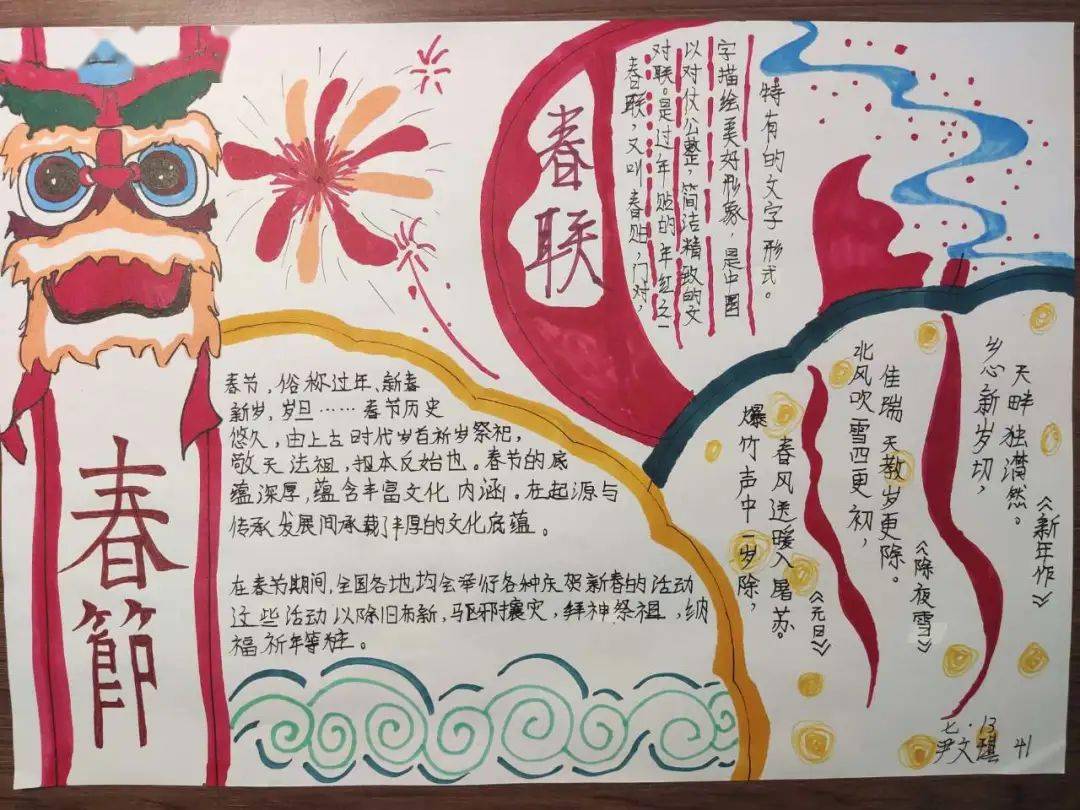 春節
春节，俗称过年、新春
新岁，岁旦……春节历史
悠久，由上古时代岁首祈岁祭祀，
敬天法祖，报本反始也。春节的底
蕴深厚，蕴含丰富文化内涵。在起源与
传承发展间承载了丰厚的文化底蕴。
在春节期间，全国各地均会举行各种庆贺新春的活动
这些活动以除旧布新，驱邪攘灾，拜神祭祖，纳
福祈年等桩。
春联
春联，又叫春贴，门对，
对联。是过年贴的年红之一
以对仗公整，简洁精致的文
字描绘美好形象，是中国
特有的文字形式。
爆竹声中一岁除，
春风送暖入屠苏。
《元旦》
北风吹雪四更初，
佳瑞天教岁更除。
《除夜雪》
乡心新岁切，
天畔独潸然。
《新年作》
七·13
尹文琪 41